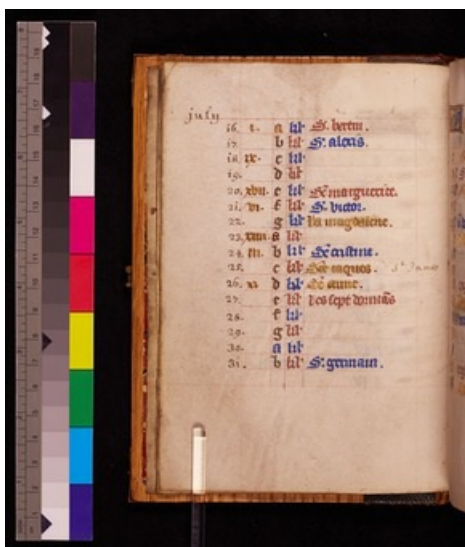 july
16. i. a kl' S. bertin.
17. b kl' S. alexis.
18. ix. c kl'
19. d kl'
20. xvii. e kl' Ste marguerite.
21. vi. f kl' S. victor.
22. g kl' La magdaleine.
23. xiiii. a kl'
24. iii. b kl' Ste cristine.
25. c kl' jaques. St James
26. xi d kl' Ste anne.
27. e kl' Les sept dormans
28. f kl'
29. g kl'
30. a kl'
31. b kl' S. germain.